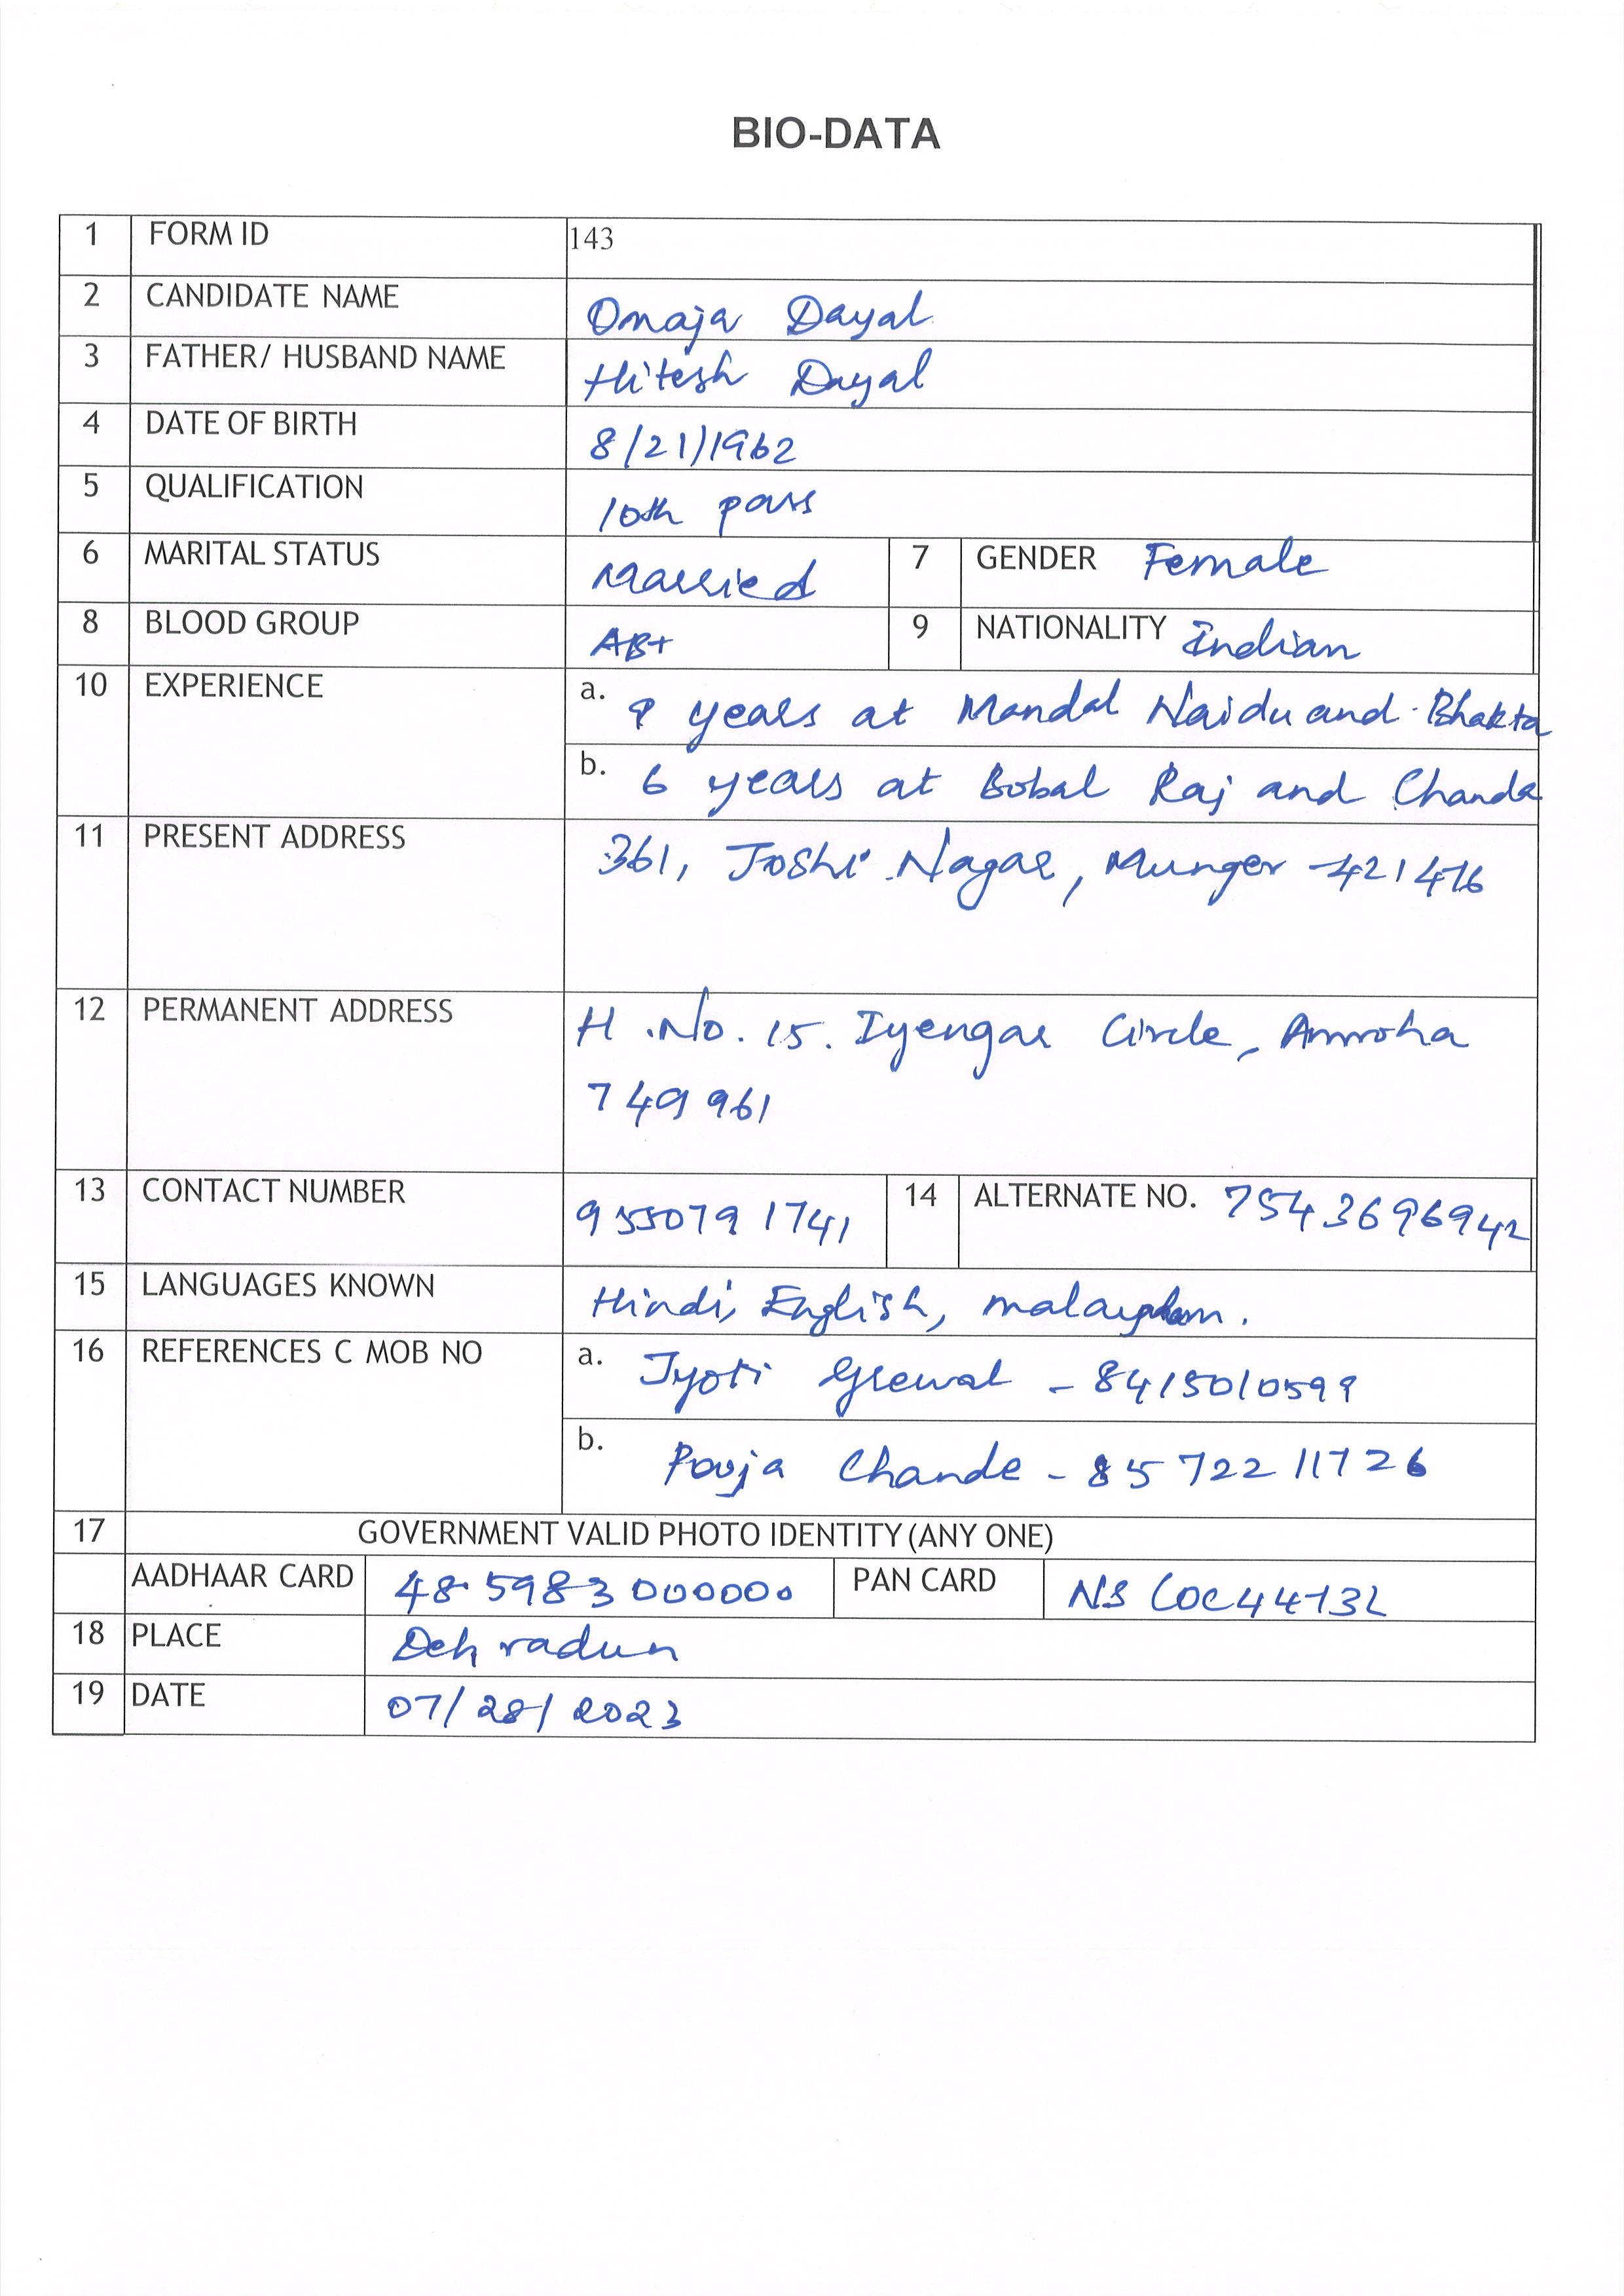 BIO-DATA
1 FORM ID 143
2 CANDIDATE NAME Omaja Dayal
3 FATHER/ HUSBAND NAME Hitesh Dayal
4 DATE OF BIRTH 8/21/1962
5 QUALIFICATION 10th pass
6 MARITAL STATUS Married 7 GENDER Female
8 BLOOD GROUP AB+ 9 NATIONALITY Indian
10 EXPERIENCE a. years at Mandal Naidu and Bhakta
b. 6 years at Bobal Raj and Chanda
11 PRESENT ADDRESS 361, Joshi Nagar, Munger - 421476
12 PERMANENT ADDRESS H.No. 15. Iyengar Circle, Amroha
749961
13 CONTACT NUMBER 9550791741 14 ALTERNATE NO. 7543696942
15 LANGUAGES KNOWN Hindi, English,
16 REFERENCES C MOB NO a. Jyoti Grewal - 8415010599
b. Pooja Chande - 8572211726
17 GOVERNMENT VALID PHOTO IDENTITY (ANY ONE)
AADHAAR CARD 485983000000 PAN CARD
18 PLACE Dehradun
19 DATE 07/28/2023